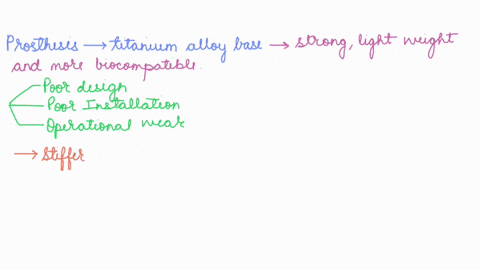 Prosthesis → titanium alloy base → strong, light weight
and more biocompatible.
Poor design
Poor Installation
Operational weak
→ Stiffer